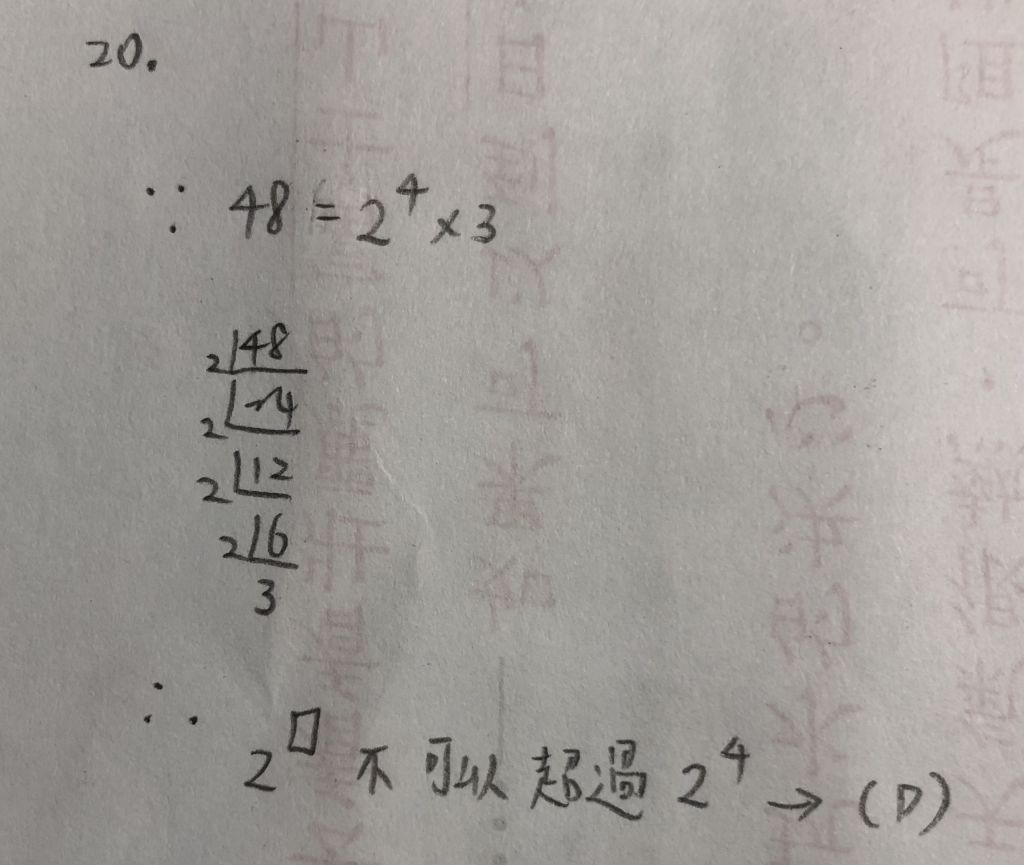 20.
∵ 48 = 2⁴ × 3
2 48
2 24
2 12
2 6
3
∴ 2^□ 不可以超過 2⁴ → (D)